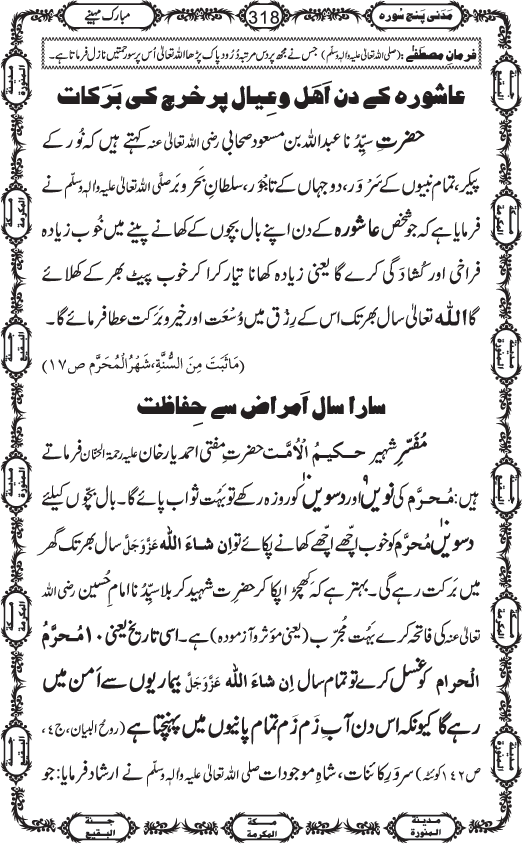 مبارک مہینے
318
مَدَنی پنج سُورہ
فرمانِ مصطَفٰے : (صلی اللہ تعالیٰ علیہ والہٖ وسلّم) جس نے مجھ پر دس مرتبہ دُرُود پاک پڑھا اللہ تعالیٰ اُس پر سو رحمتیں نازل فرماتا ہے۔
عاشورہ کے دن اَھل و عِیال پر خرچ کی بَرَکات
حضرتِ سیِّدُنا عبداللہ بن مسعود صحابی رضی اللہ تعالیٰ عنہ کہتے ہیں کہ نُور کے
پیکر، تمام نبیوں کے سَرْوَر، دو جہاں کے تاجْوَر، سلطانِ بَحروبَر صلَّی اللہ تعالیٰ علیہ والہٖ وسلَّم نے
فرمایا ہے کہ جو شخص عاشورہ کے دن اپنے بال بچّوں کے کھانے پینے میں خُوب زیادہ
فراخی اور کُشادَگی کرے گا یعنی زیادہ کھانا تیّار کرا کر خوب پیٹ بھر کے کھلائے
گا اللہ تعالیٰ سال بھر تک اس کے رِزْق میں وُسْعَت اور خیر و بَرَکت عطا فرمائے گا۔
(مَاثَبَتَ مِنَ السُّنَّۃ، شَھْرُ الْمُحَرَّم ص۱۷)
سارا سال اَمراض سے حِفاظت
مُفَسِّرِ شہیر حکیمُ الْاُمَّت حضرتِ مفتی احمد یار خان علیہ رحمۃ الحنّان فرماتے
ہیں: مُحرَّم کی نویں ۹ اور دسویں ۱۰ کو روزہ رکھے تو بَہُت ثواب پائے گا۔ بال بچّوں کیلئے
دسویں ۱۰ مُحرَّم کو خوب اچّھے اچّھے کھانے پکائے تو اِن شاءَ اللہ عَزَّوَجَلَّ سال بھر تک گھر
میں بَرَکت رہے گی۔ بہتر ہے کہ کِھچڑا پکا کر حضرتِ شہیدِ کربلا سیِّدُنا امامِ حُسین رضی اللہ
تعالیٰ عنہ کی فاتحہ کرے بَہُت مُجرَّب (یعنی مؤثر و آزمودہ) ہے۔ اسی تاریخ یعنی ۱۰ مُحرَّمُ
الْحرام کو غسل کرے تو تمام سال اِن شاءَ اللہ عَزَّوَجَلَّ بیماریوں سے اَمن میں
رہے گا کیونکہ اس دن آبِ زَم زَم تمام پانیوں میں پہنچتا ہے (روحُ البیان، ج۴،
ص۱۴۲ کوئٹہ) سروَرِ کائنات، شاہِ موجودات صلی اللہ تعالیٰ علیہ والہٖ وسلّم نے ارشاد فرمایا: جو
مدینۃ المنورۃ
جنۃ البقیع
مکۃ المکرمۃ
مکۃ المکرمۃ
جنۃ البقیع
مدینۃ المنورۃ
مدینۃ المنورۃ
جنۃ البقیع
مکۃ المکرمۃ
مکۃ المکرمۃ
جنۃ البقیع
مدینۃ المنورۃ
جنۃ البقیع
مکۃ المکرمۃ
مدینۃ المنورۃ